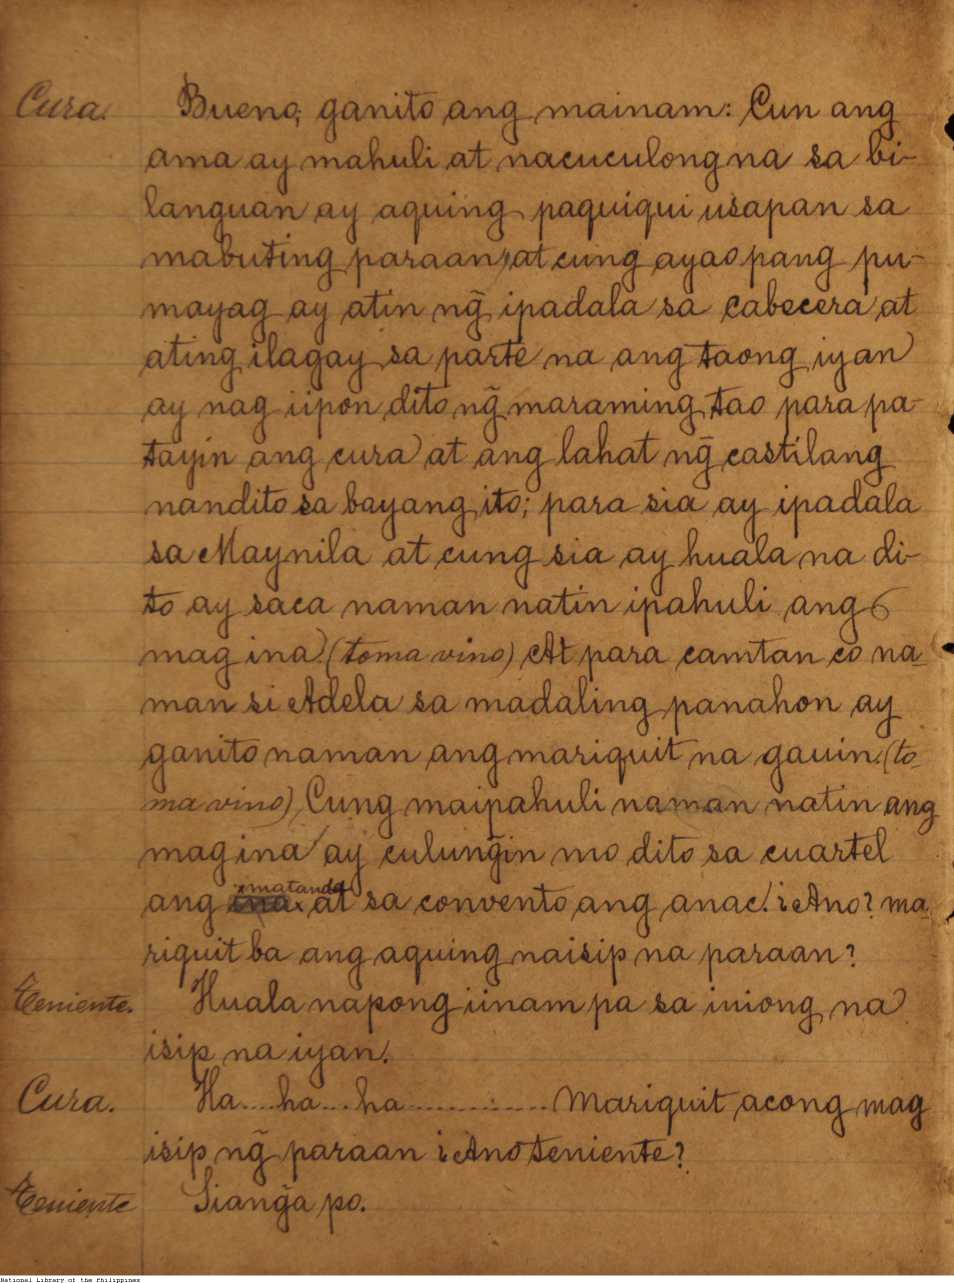 Cura. Bueno; ganito ang mainam: Cun ang
ama ay mahuli at nacuculong na sa bi-
languan ay aquing paquiqui usapan sa
mabuting paraan, at cung ayao pang pu-
mayag ay atin ng̃ ipadala sa cabecera at
ating ilagay sa parte na ang taong iyan
ay nag iipon dito ng̃ maraming tao para pa-
tayin ang cura at ang lahat ng̃ castilang
nandito sa bayang ito; para sia ay ipadala
sa Maynila at cung sia ay huala na di-
to ay saca naman natin ipahuli ang
mag ina (toma vino) At para camtan co na-
man si Adela sa madaling panahon ay
ganito naman ang mariquit na gauin. (to-
ma vino) Cung maipahuli naman natin ang
mag ina ay culung̃in mo dito sa cuartel
ang matanda at sa convento ang anac! ¿Ano? ma-
riquit ba ang aquing naisip na paraan?
Teniente. Huala napong iinam pa sa iniong na
isip na iyan.
Cura. Ha....ha...ha.............. Mariquit acong mag
isip ng̃ paraan ¿Ano teniente?
Teniente Siang̃a po.
National Library of the Philippines